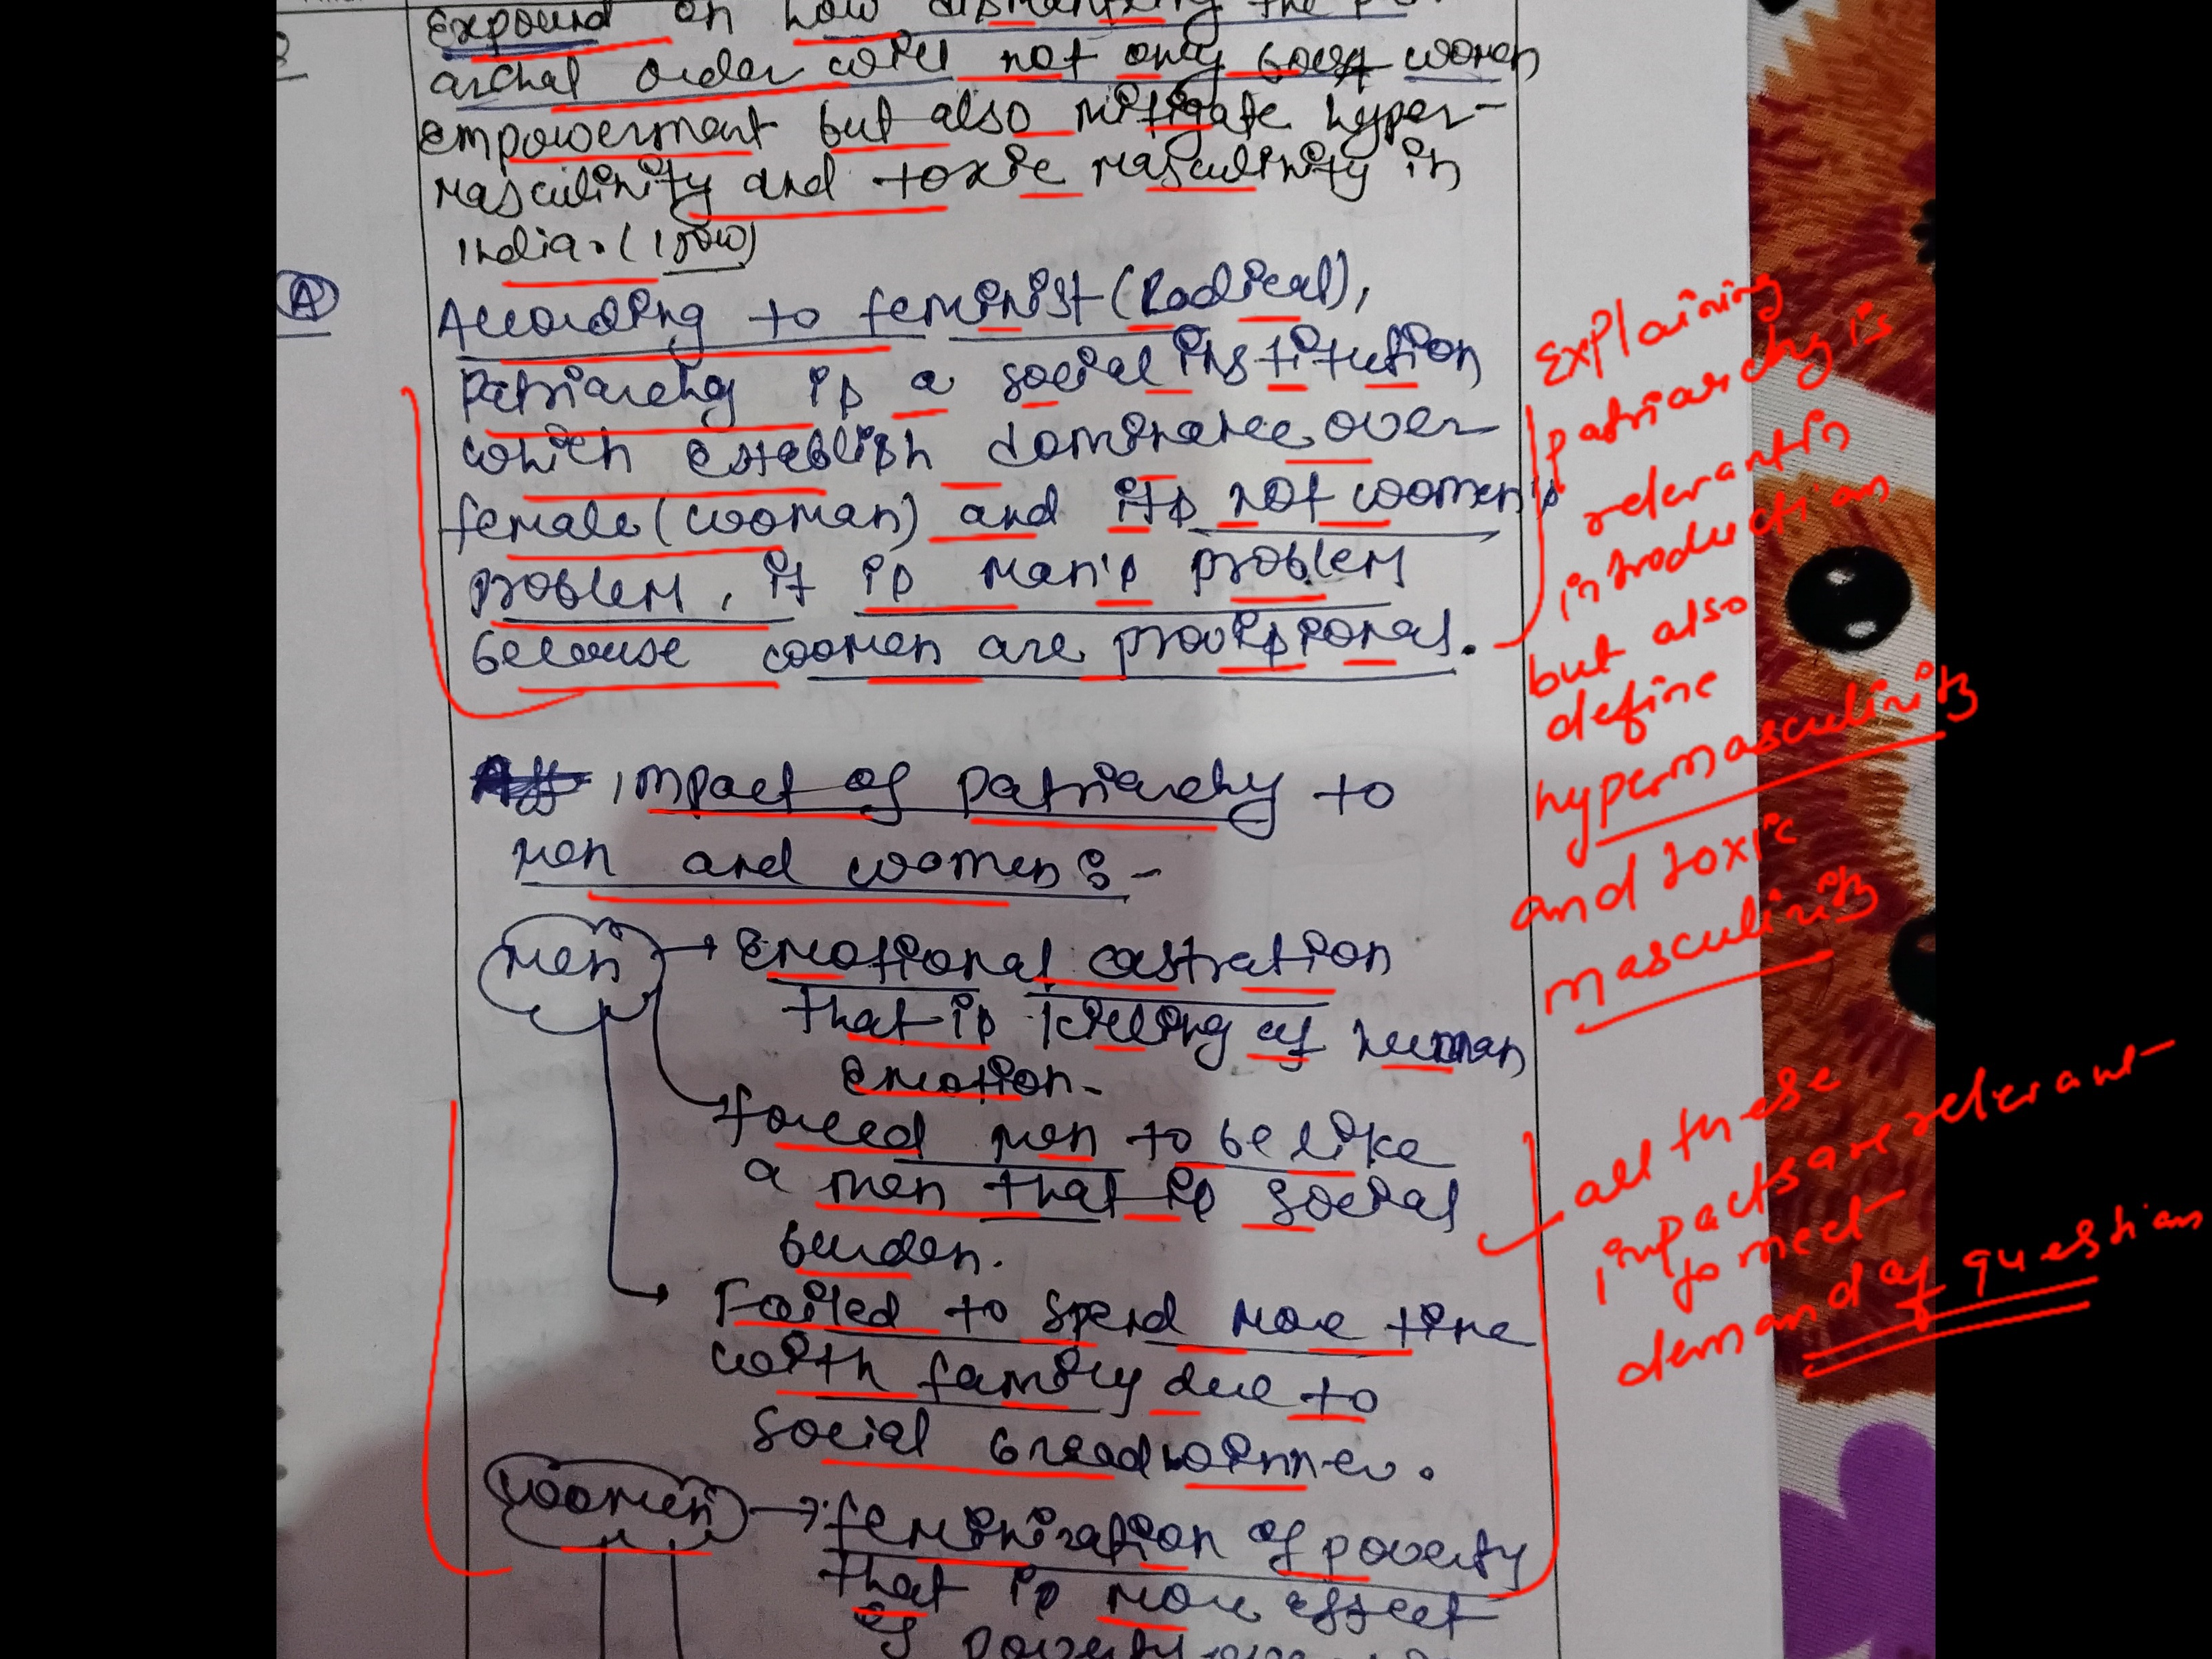 Expound on how dismantling the
archal order will not only boost women
empowerment but also mitigate hyper-
masculinity and toxic masculinity in
India. (150w)
A
According to feminist (Radical),
Patriarchy is a social institution
which establish dominance over
female (woman) and its not women's
problem, it is man's problem
because women are provisional.
Explaining
patriarchy is
relevant in
introduction
but also
define
hypermasculinity
and toxic
masculinity
Impact of patriarchy to
men and women :-
Men → Emotional castration
that is killing of human
emotion.
forced men to be like
a men that is social
burden.
Failed to spend more time
with family due to
social breadwinner.
all these
impacts are relevant
to meet
demand of question
Women → feminization of poverty
that is more effect
of poverty